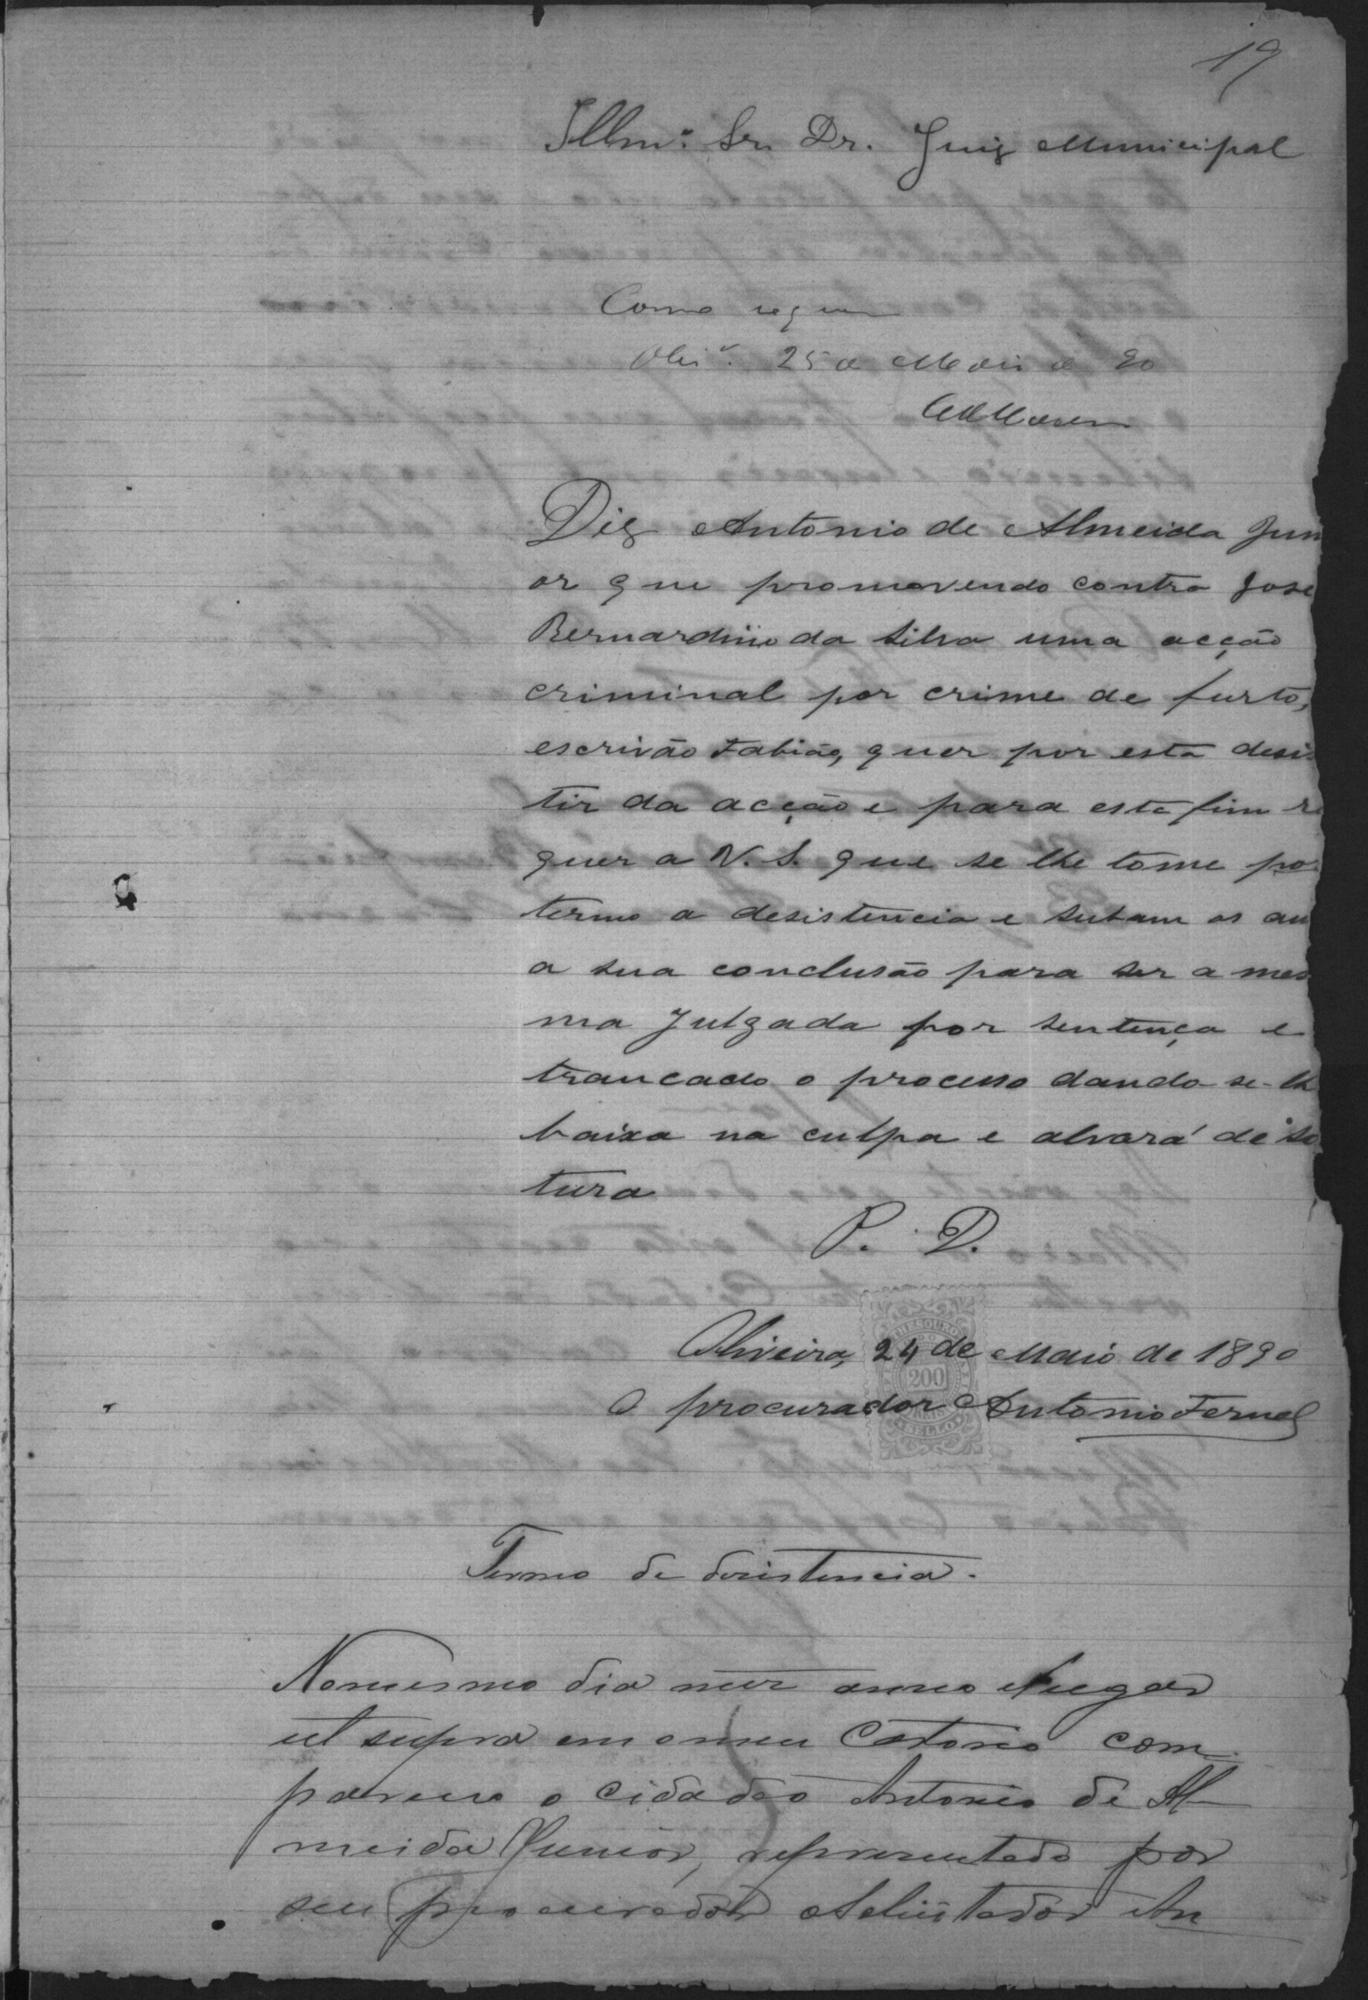 19
Illmº. Sr. Dr. Juiz Municipal
Como requer
Olivª. 25 de Maio de 90
Diz Antonio de Almeida Jun
or que promovendo contra José
Bernardino da Silva uma acção
criminal por crime de furto,
escrivão Fabião, quer por esta desis
tir da acção e para este fim re
quer a V. S. que se lhe tome por
termo a desistencia e subam os au
a sua conclusão para ser a mes
ma julgada por sentença e
trancado o processo dando-se-lh
baixa na culpa e alvará de so
tura
P. D.
Oliveira, 24 de Maio de 1890
THESOURO
200
SELLO
O procurador Antonio Fernal
Termo de desistencia.
No mesmo dia mez anno e lugar
ut supra em o meu Cartorio com
pareceu o cidadão Antonio de Al
meida Junior, representado por
seu procurador solicitador An